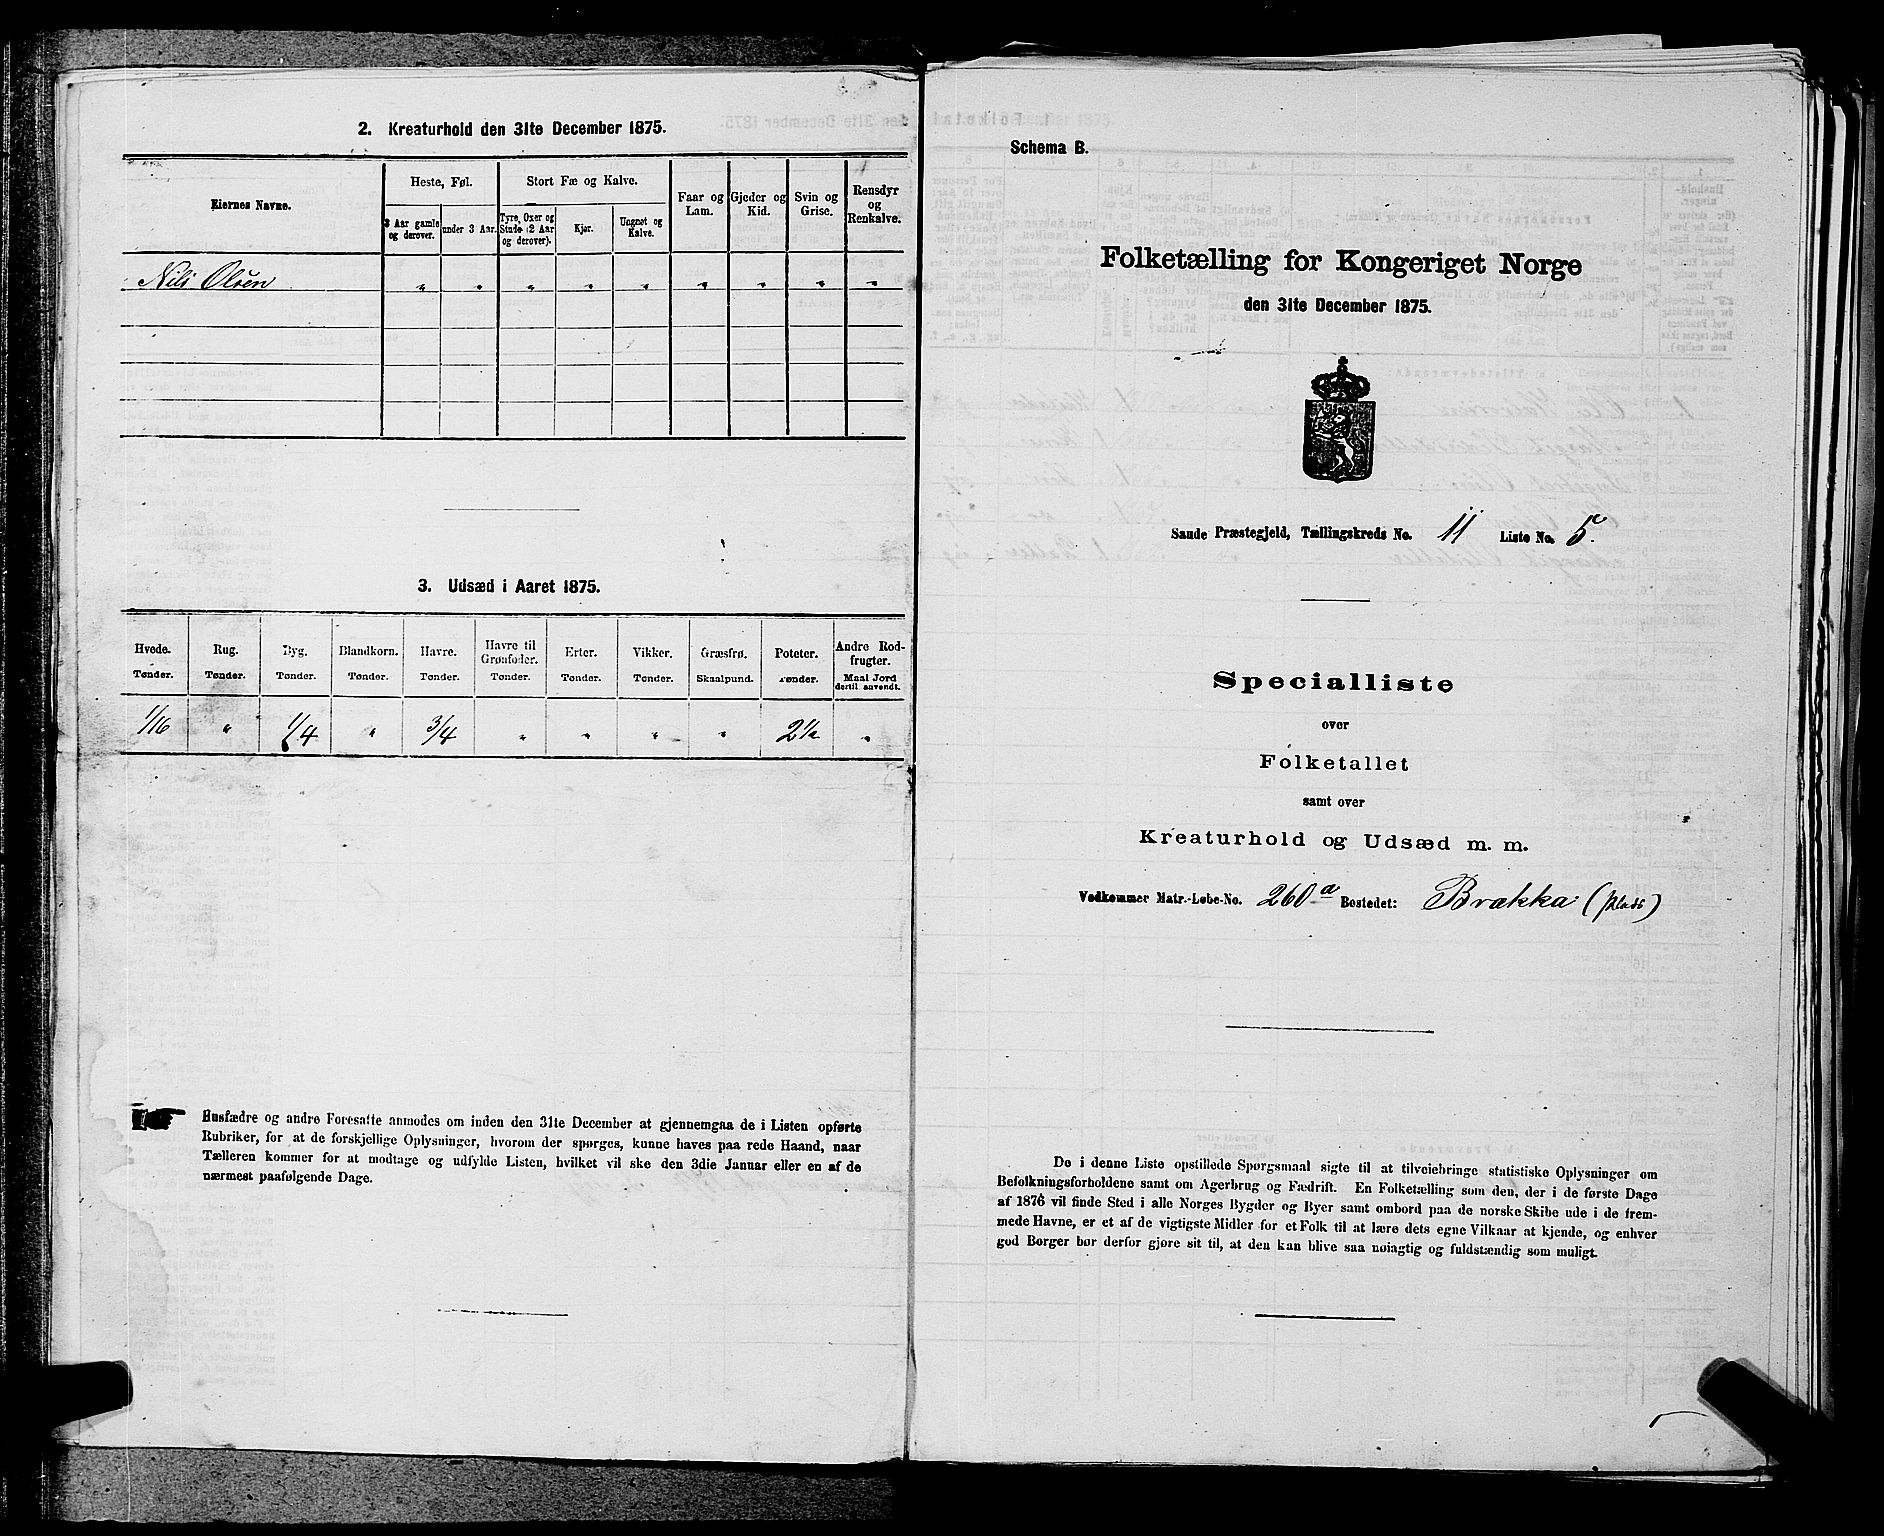 2. Kreaturhold den 31te December 1875.
Eiernes Navne.
Heste, Føl.
Stort Fæ og Kalve.
Faar og Lam.
Gjeder og Kid.
Svin og Grise.
Rensdyr og Renkalve.
3 Aar gamle og derover.
under 3 Aar.
Tyre, Oxer og Stude (2 Aar og derover).
Kjør.
Ungnøt og Kalve.
Nils Olsen " " " " " " " " "
3. Udsæd i Aaret 1875.
Hvede. Rug. Byg. Blandkorn. Havre. Havre til Grønfoder. Erter. Vikker. Græsfrø. Poteter. Andre Rodfrugter.
Tønder. Tønder. Tønder. Tønder. Tønder. Tønder. Tønder. Tønder. Skaalpund. Tønder. Maal Jord dertil anvendt.
1/16 " 1/4 " 3/4 " " " " 2 1/2 "
Husfædre og andre Foresatte anmodes om inden den 31te December at gjennemgaa de i Listen opførte
Rubriker, for at de forskjellige Oplysninger, hvorom der spørges, kunne haves paa rede Haand, naar
Tælleren kommer for at modtage og udfylde Listen, hvilket vil ske den 3die Januar eller en af de
nærmest paafølgende Dage.
Schema B.
Folketælling for Kongeriget Norge
den 31te December 1875.
Sande Præstegjeld, Tællingskreds No. 11 Liste No. 5.
Specialliste
over
Folketallet
samt over
Kreaturhold og Udsæd m. m.
Vedkommer Matr.-Løbe-No. 260a Bostedet: Brækka (plads)
De i denne Liste opstillede Spørgsmaal sigte til at tilveiebringe statistiske Oplysninger om
Befolkningsforholdene samt om Agerbrug og Fædrift. En Folketælling som den, der i de første Dage
af 1876 vil finde Sted i alle Norges Bygder og Byer samt ombord paa de norske Skibe ude i de frem-
mede Havne, er et af de vigtigste Midler for et Folk til at lære dets egne Vilkaar at kjende, og enhver
god Borger bør derfor gjøre sit til, at den kan blive saa nøiagtig og fuldstændig som muligt.